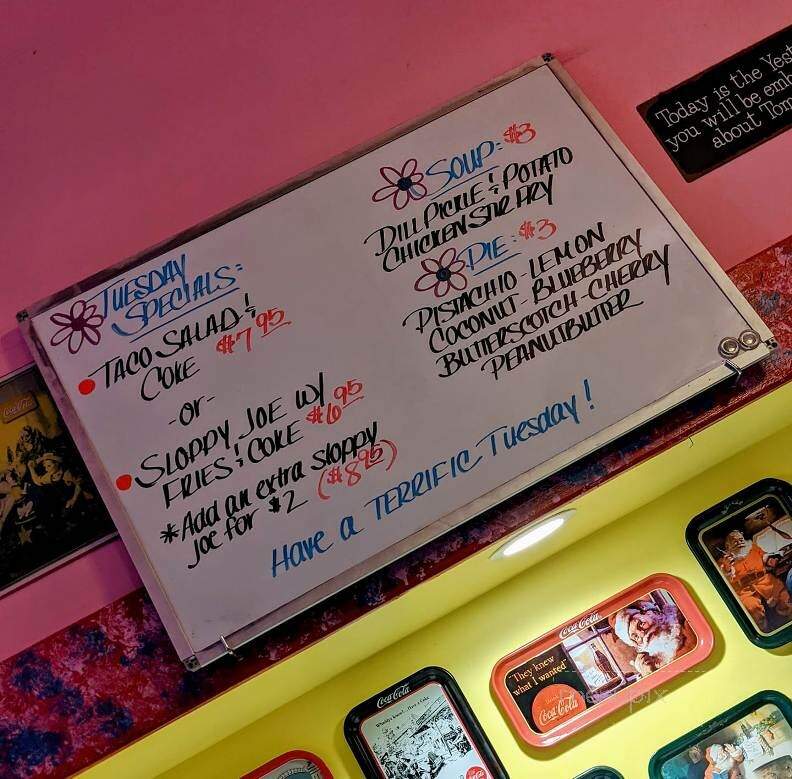 TUESDAY
SPECIALS:
TACO SALAD &
COKE $7.95
-or-
SLOPPY JOE W/
FRIES & COKE $6.95
*Add an extra sloppy
Joe for $2 ($8.95)
SOUP: $3
DILL PICKLE & POTATO
CHICKEN STIR FRY
PIE: $3
PISTACHIO - LEMON
COCONUT - BLUEBERRY
BUTTERSCOTCH - CHERRY
PEANUT BUTTER
Have a TERRIFIC Tuesday!
Today is the
you will be
about
Coca-Cola
Coca-Cola
"They knew
what I wanted"
Coca-Cola
Coca-Cola